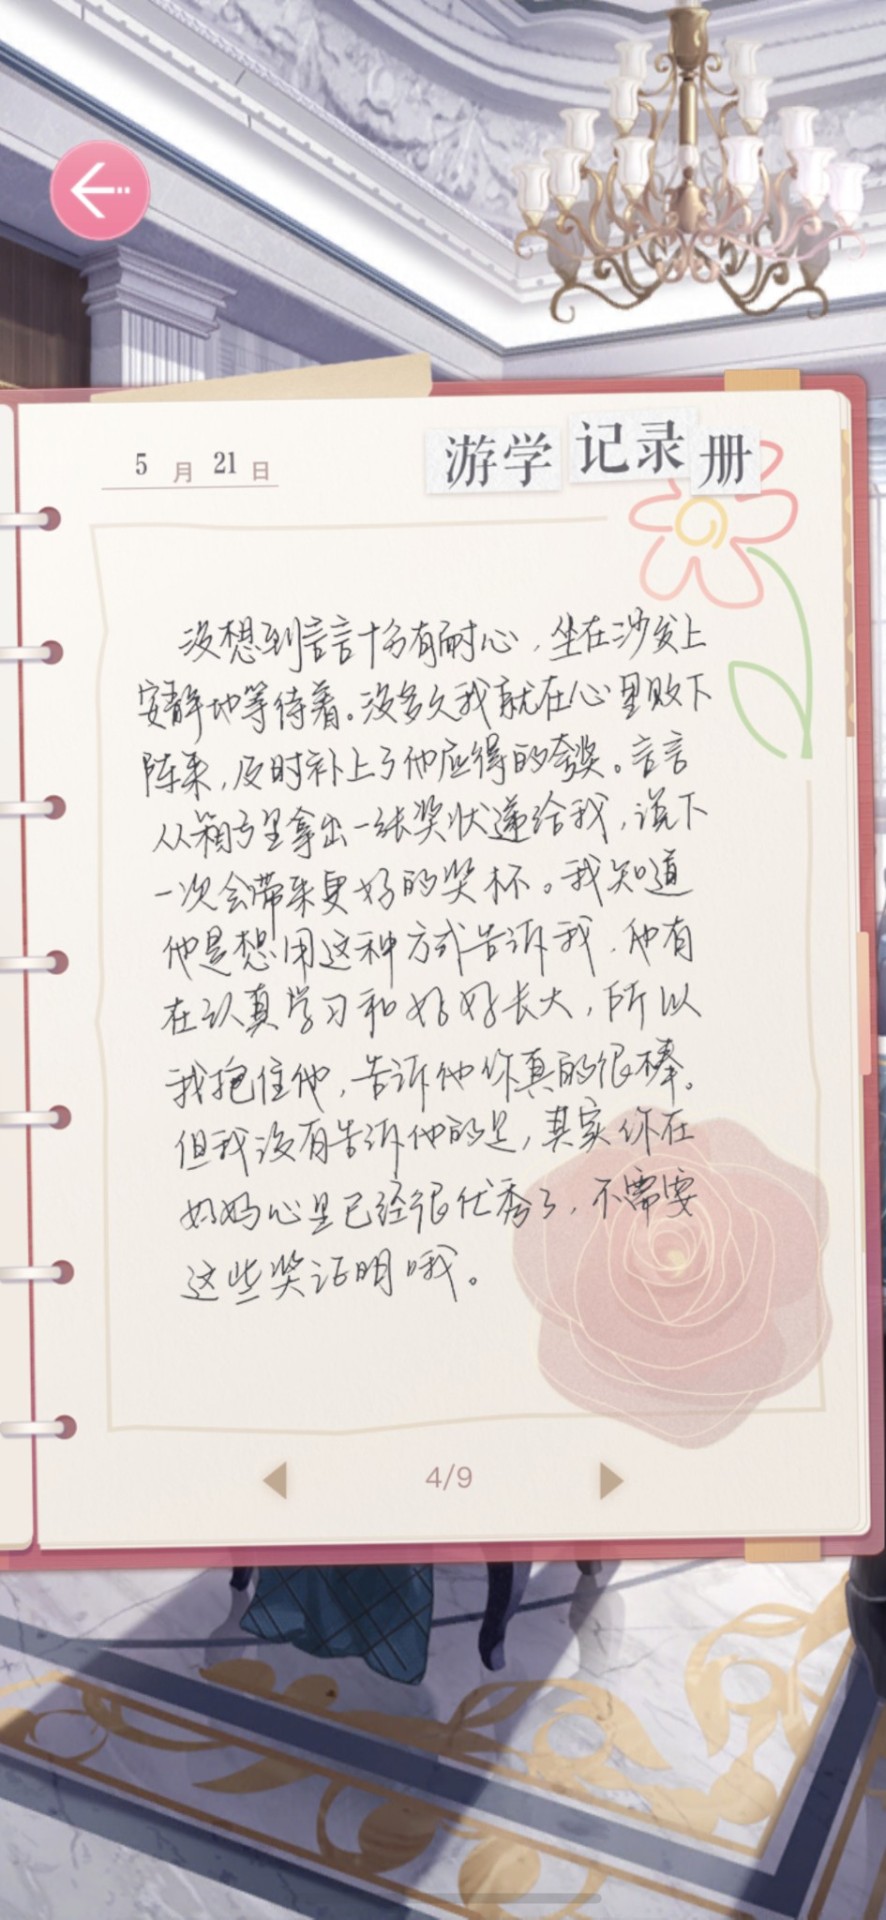 5月21日
游学记录册
没想到言言十分有耐心，坐在沙发上
安静地等待着。没多久我就在心里败下
阵来，及时补上了他应得的夸奖。言言
从箱子里拿出一张奖状递给我，说下
一次会带来更好的奖杯。我知道
他是想用这种方式告诉我，他有
在认真学习和好好长大，所以
我抱住他，告诉他你真的很棒。
但我没有告诉他的是，其实你在
妈妈心里已经很优秀了，不需要
这些奖证明哦。
4/9